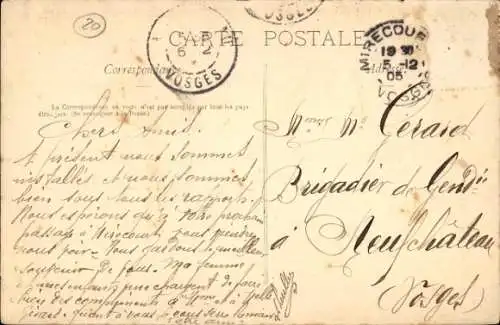 20
CARTE POSTALE
VOSGES
MIRECOURT
19 30
5-12
05
VOSGES
Correspondance
Adresse
La Correspondance au verso n'est pas acceptée par tous les pays
étrangers (Se renseigner à la Poste)
Chers Amis.
A présent nous sommes
installés et nous sommes
bien sous tous les rapports
Nous espérons qu'à votre prochain
passage à Mirecourt vous viendrez
nous voir. Nous gardons le meilleur
souvenir de vous. Ma femme
me chargent de faire
des compliments à Mme et à Melle
Gérard. Quant à vous
Mr Gérard
Brigadier de Gendie
à Neufchâteau
(Vosges)